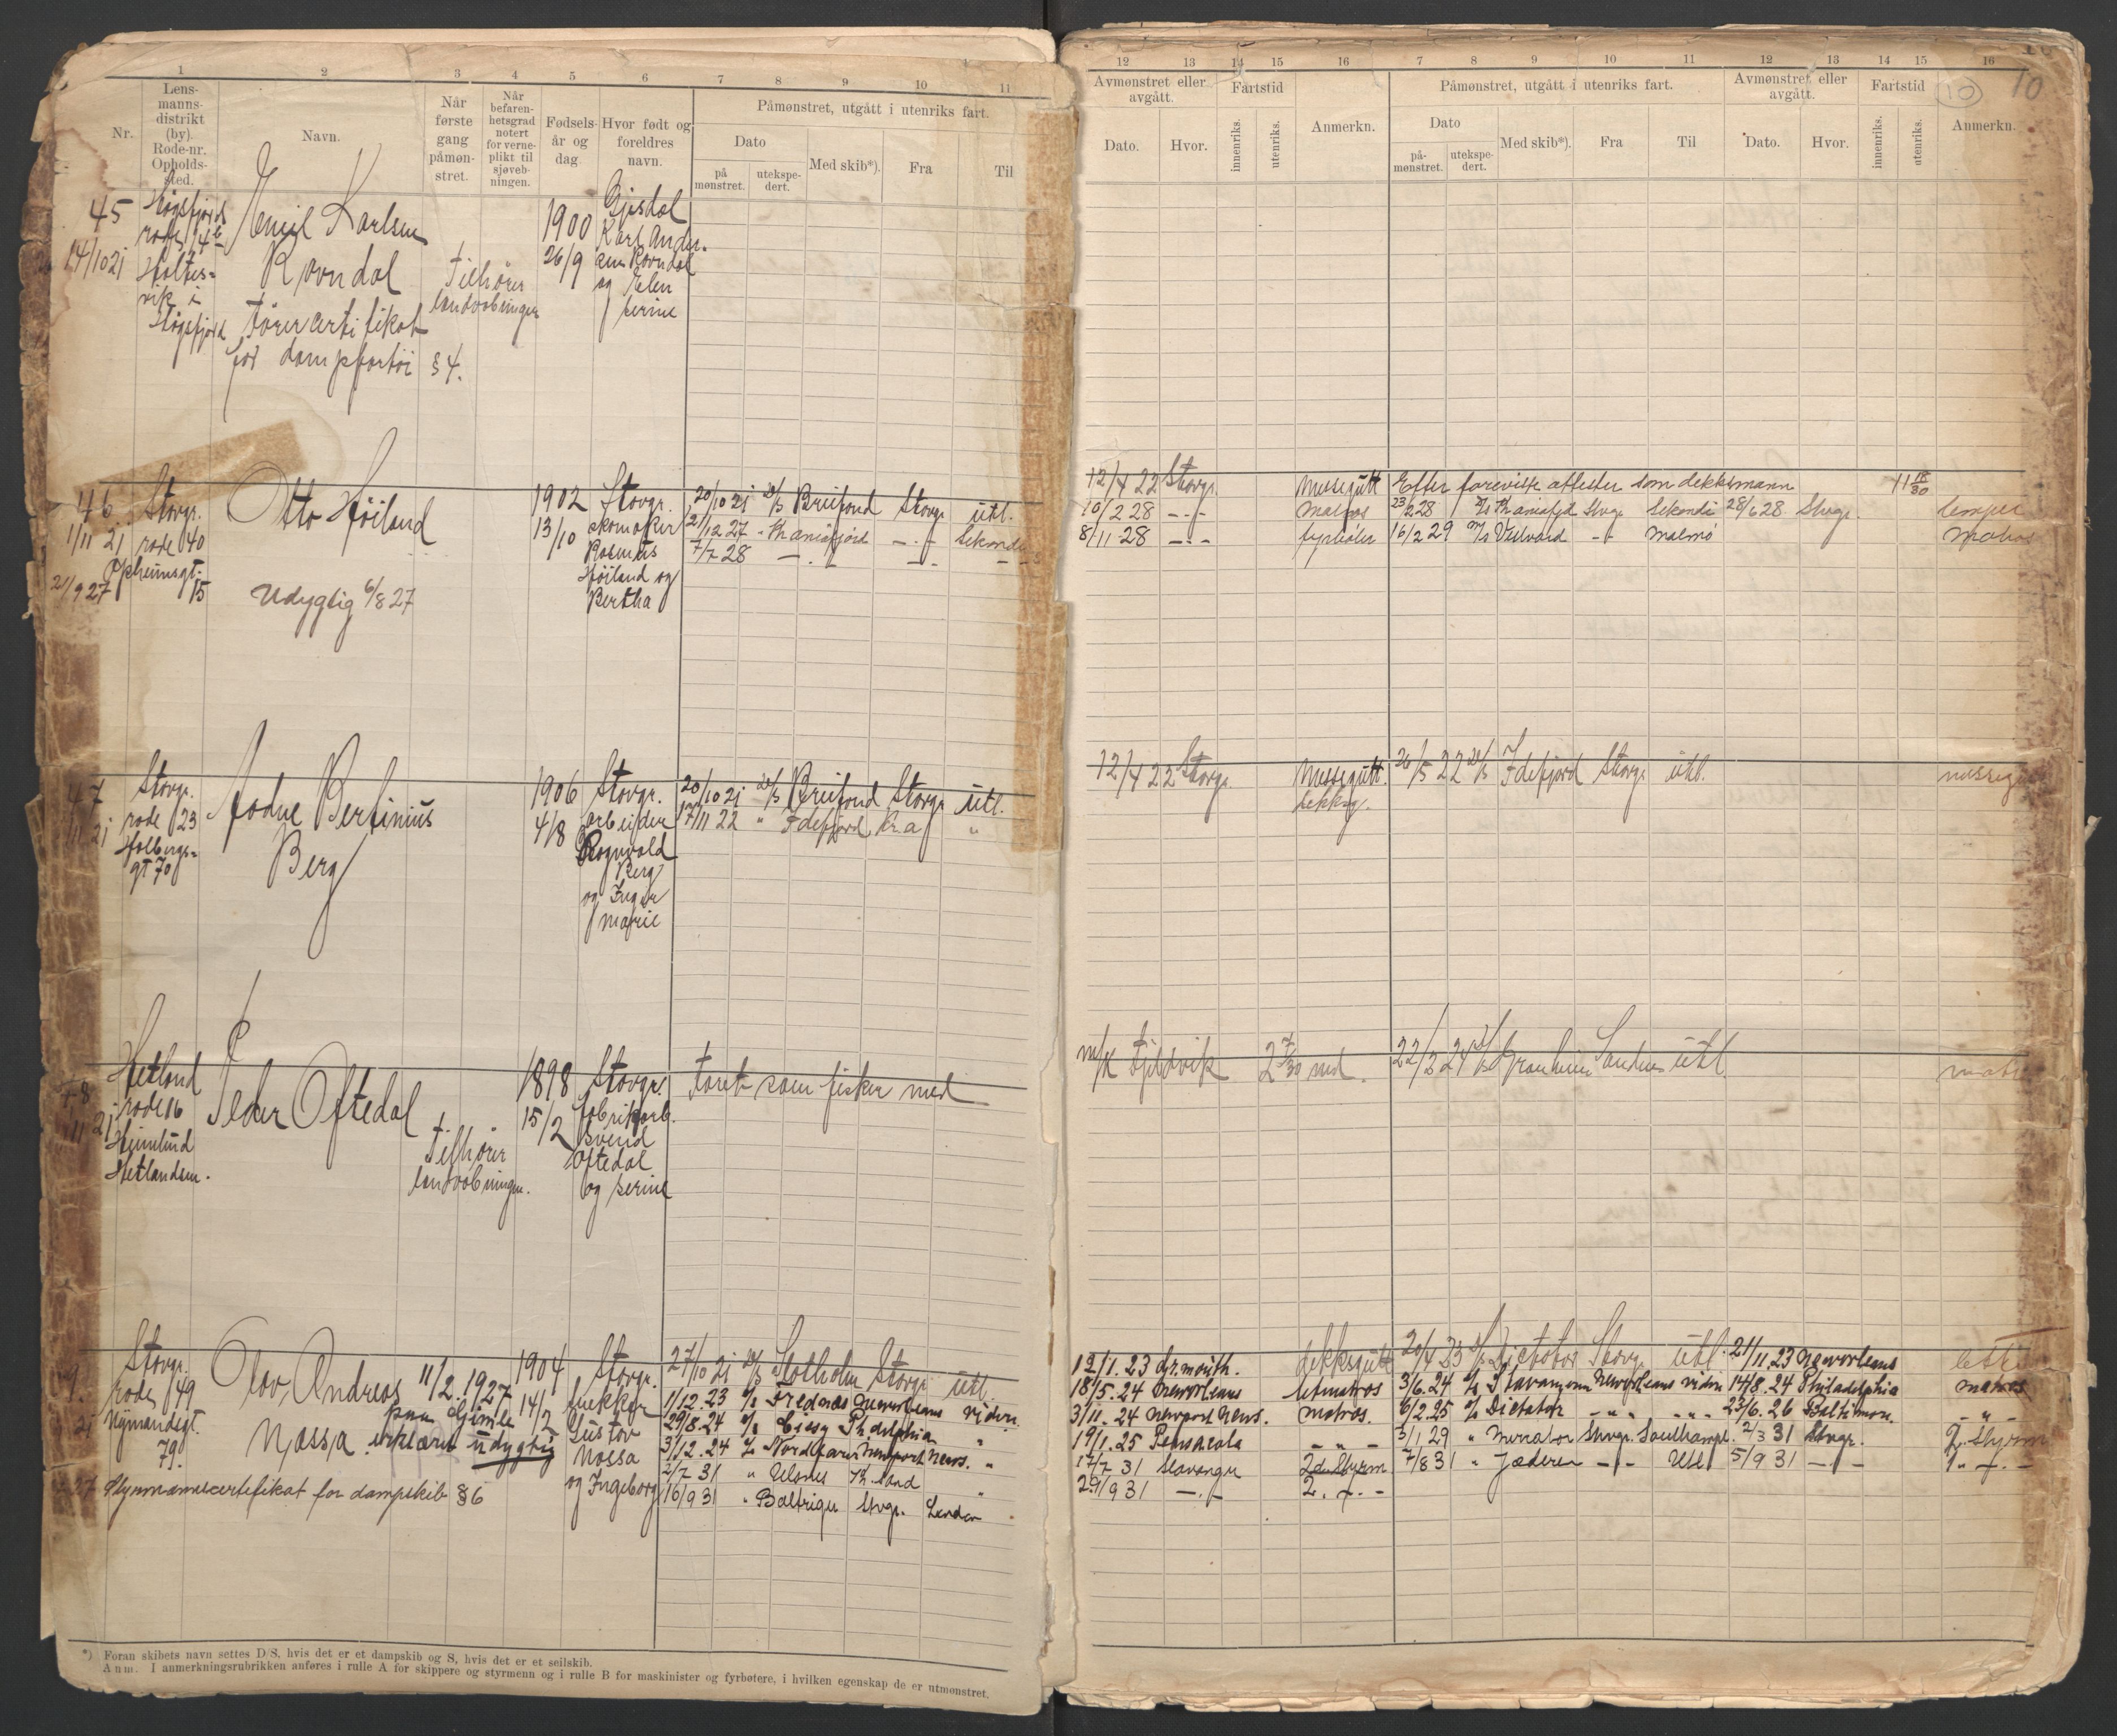 1 2 3 4 5 6 7 8 9 10 11
Nr.
Lens-
manns-
distrikt
(by).
Rode-nr.
Opholds-
sted.
Navn.
Når
første
gang
påmøn-
stret.
Når
befaren-
hetsgrad
notert
for verne-
plikt til
sjøveb-
ningen.
Fødsels-
år og
dag
Hvor født og
foreldres
navn.
Påmønstret, utgått i utenriks fart.
Dato
på
mønstret.
utekspe-
dert.
Med skib*).
Fra
Til
45
14/10 21
Høgsfjord
rode 14b
Holtes-
vik i
Høgsfjord
Emil Karlsen
Ravndal
Førercertifikat
for dampfartøi § 4.
Tilhører
landvæbningen
1900
26/9
Gjesdal
Karl Ander-
sen Ravndal
og Elen
Serine
46
1/11 21
21/9 27
Stavgr.
rode 40
Opheimsgt.
15
Otto Høiland
Udygtig 6/8 27
1902
13/10
Stavgr.
skomaker
Rasmus
Høiland og
Bertha
20/10 21 D/S Breifond Stavgr. utl.
21/12 27 - Kr.aniafjord - - Sekondi
7/7 28 - - - -
47
Stavgr.
rode 23
Holbergs-
gt 70
Aadne Bertinius
Berg
1906
4/8
Stavgr.
arbeider
Rognvald
Berg
og Inger
Marie
20/10 21 D/S Breifond Stavgr. utl.
17/11 22 " Idefjord Kr.a "
48
1/11 21
Hetland
rode 16
Heimlund
Hetlandsm.
Peder Oftedal
Tilhører
landvæbningen.
1898
15/2
Stavgr.
fabrikarb.
Svend
Oftedal
og Serine
Faret som fisker med
9
21
27
Stavgr.
rode 49
Nymandsgt.
79.
Olav Andreas
Njassa
11/2 1927
paa Gimle
erklæret udygtig
Styrmannscertifikat for dampskib § 6
1904
14/2
Stavgr.
Gustav
Nossa
og Ingeborg
27/10 21 D/S Slotholm Stavgr. utl.
1/12.23 D/S Frednæs Neworleans viden.
29/8.24 D/S Phdelphia "
3/12.24 D/S Nordfarer Newport News. "
2/7 31 " Ulsnes Kr.sand "
16/9 31 " Baltrigu Stvgr. London
*) Foran skibets navn settes D/S, hvis det er et dampskib og S, hvis det er et seilskib.
Anm. I anmerkningsrubrikken anføres i rulle A for skippere og styrmenn og i rulle B for maskinister og fyrbøtere, i hvilken egenskap de er utmønstret.
12 13 14 15 16 7 8 9 10 11 12 13 14 15 16
10
10
Avmønstret eller
avgått.
Dato.
Hvor.
Fartstid
innenriks.
utenriks.
Anmerkn.
Påmønstret, utgått i utenriks fart.
Dato
på-
mønstret.
utekspe-
dert.
Med skib*).
Fra
Til
Avmønstret eller
avgått.
Dato.
Hvor.
Fartstid
innenriks.
utenriks.
Anmerkn.
12/4 22 Stavgr. Messegutt Efter foreviste attester som dekksmann 11 18/30
10/2 28 - - Matros 23/2 28 D/S Kr.aniafjd Stvgr. Sekondi 28/6 28 Stvgr. Lemper
8/11-28 - - fyrbøter 16/2 29 M/S Vestvard - - Malmø Matros
12/4 22 Stavgr. Messegutt. 26/5 22 D/S Idefjord Stavgr. utl.
dekksg.
M/K Fjeldvik 2 7/30 md. 22/2 24 D/S Granheim Sandnes utl.
12/1.23 Gr.mouth. dekksgutt 20/4 23 D/S Dictator Stavgr. utl. 21/11.23 Neworleans
18/5.24 Neworleans letmatros 3/6.24 D/S Stavangeren Neworleans viden 14/8.24 Philadelphia Matros
3/11.24 Newport News. Matros. 6/2.25 D/S Dictator - " - - " - 23/6.26 Baltimore. - " -
19/1.25 Pensacola - " - 3/1 29 " Mercator Stvgr. Southampt. 2/3 31 Stvgr. 2. Styrm
17/7 31 Stavanger 2den Styrm 7/8 31 " Jæderen - - Utl 5/9 31 - - 2. - -
29/9 31 - - 2. - -